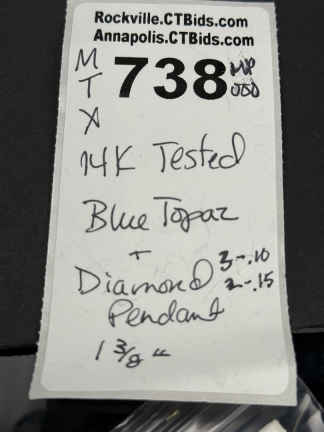 Rockville.CTBids.com
Annapolis.CTBids.com
MTX
738
14K Tested
Blue Topaz
+
Diamond 3-.10
2-.15
Pendant
1 3/8"